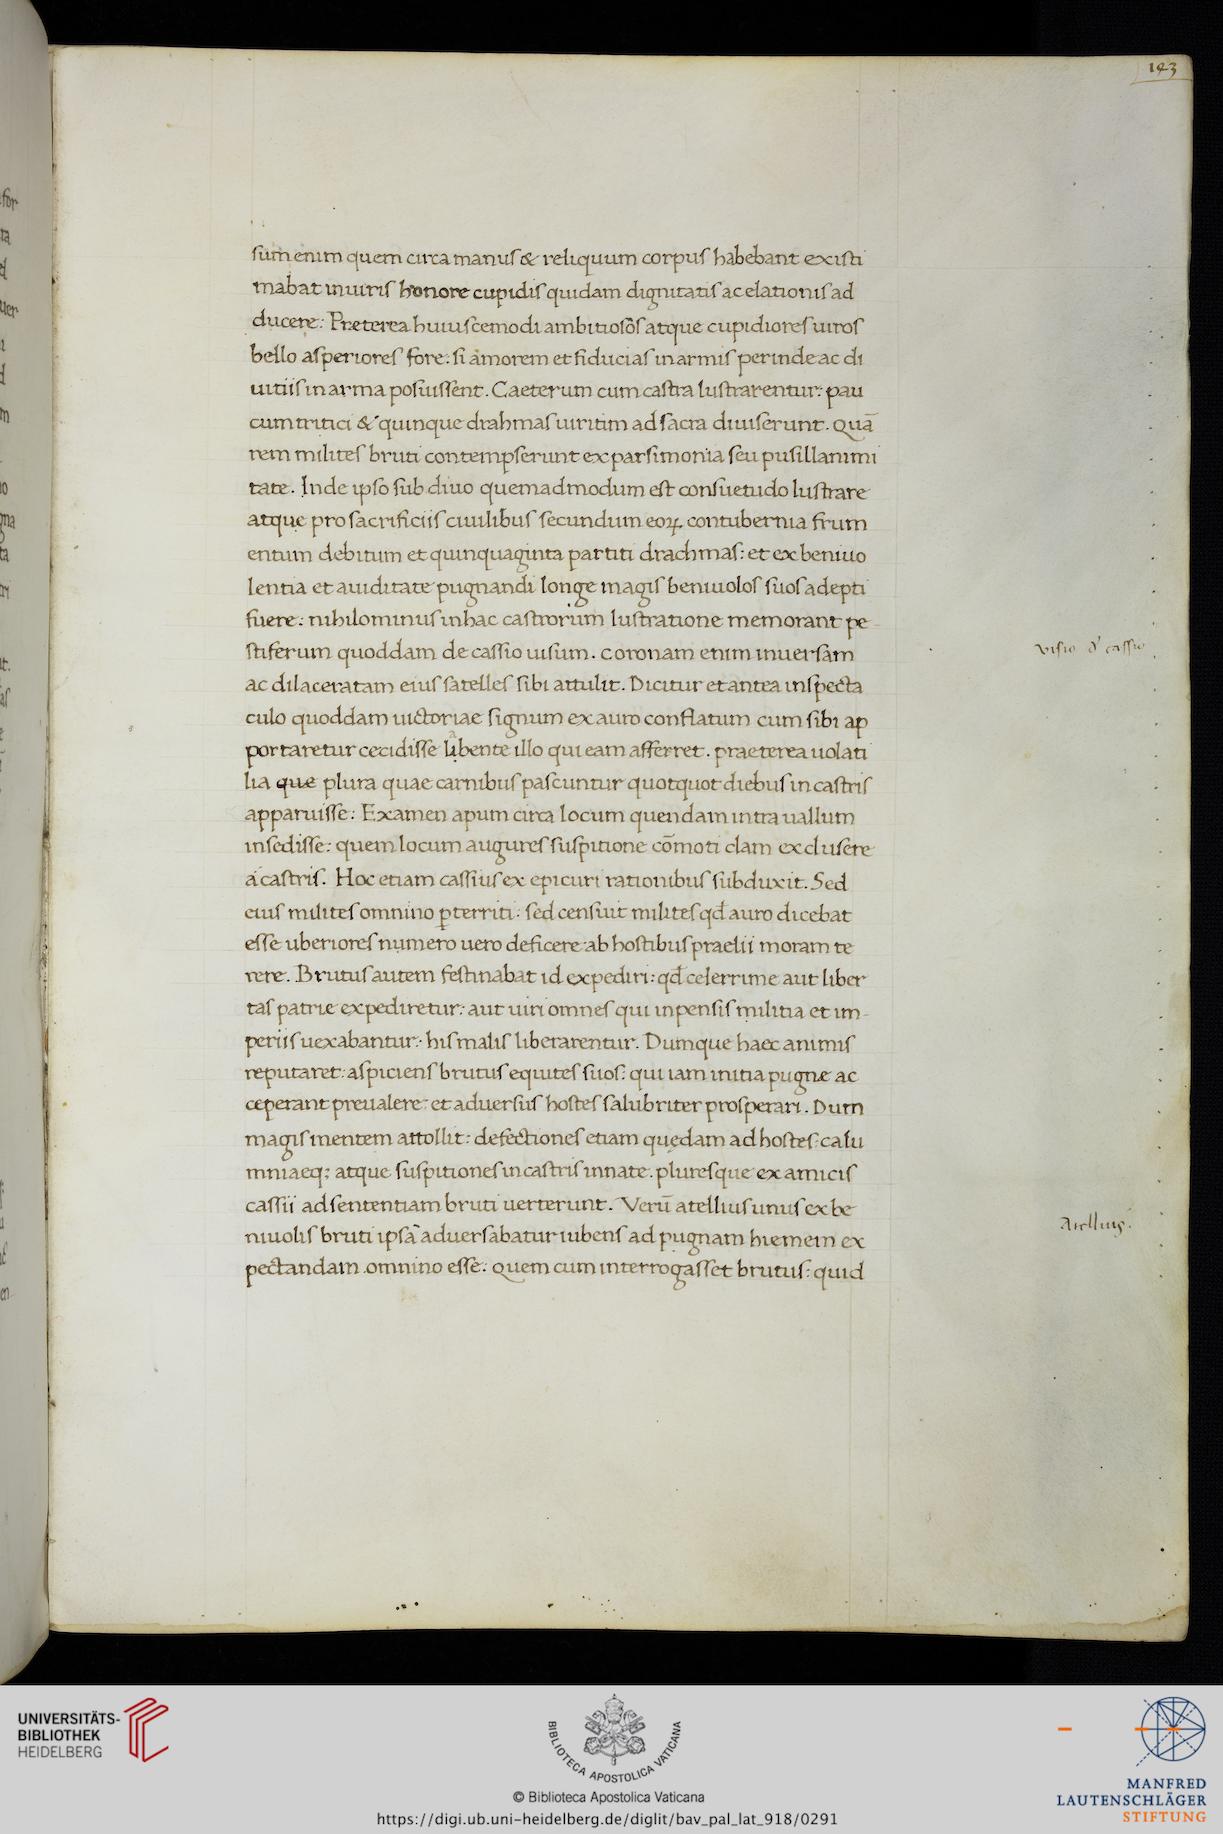 143
sum enim quem circa manus & reliquum corpus habebant existi
mabat in uiris honore cupidis quidam dignitatis ac elationis ad
ducere: Preterea huiuscemodi ambitiosos atque cupidiores uiros
bello asperiores fore: si amorem et fiducias in armis perinde ac di
uitiis in arma posuissent. Caeterum cum castra lustrarentur: pau
cum tritici & quinque drahmas uiritim ad sacra diuiserunt. Quā
rem milites bruti contempserunt ex parsimonia seu pusillanimi
tate. Inde ipso sub diuo quemadmodum est consuetudo lustrare
atque pro sacrificiis ciuilibus secundum eoꝝ contubernia frum
entum debitum et quinquaginta partiti drachmas: et ex beniuo
lentia et auiditate pugnandi longe magis beniuolos suos adepti
fuere: nihilominus in hac castrorum lustratione memorant pe
stiferum quoddam de cassio uisum. coronam enim inuersam
visio d' cassio
ac dilaceratam eius satelles sibi attulit. Dicitur et antea in specta
culo quoddam uictoriae signum ex auro conflatum cum sibi ap
portaretur cecidisse libente illo qui eam afferret. praeterea uolati
lia que plura quae carnibus pascuntur quotquot diebus in castris
apparuisse: Examen apum circa locum quendam intra uallum
insedisse: quem locum augures suspitione cōmoti clam exclusere
a castris. Hoc etiam cassius ex epicuri rationibus subduxit. Sed
eius milites omnino ꝑterriti: sed censuit milites qđ auro dicebat
esse uberiores numero uero deficere ab hostibus praelii moram te
rere. Brutus autem festinabat id expediri: qđ celerrime aut liber
tas patrie expediretur: aut uiri omnes qui inpensis militia et im-
periis uexabantur: his malis liberarentur. Dumque haec animis
reputaret: aspiciens brutus equites suos: qui iam initia pugnæ ac
ceperant preualere: et aduersus hostes salubriter prosperari. Dum
magis mentem attollit: defectiones etiam quędam ad hostes: calu
mniaeq; atque suspitiones in castris innate. pluresque ex amicis
cassii ad sententiam bruti uerterunt. Verū atellius unus ex be
Atellius.
niuolis bruti ipsā aduersabatur iubens ad pugnam hiemem ex
pectandam omnino esse. Quem cum interrogasset brutus: quid
UNIVERSITÄTS-
BIBLIOTHEK
HEIDELBERG
BIBLIOTECA APOSTOLICA VATICANA
© Biblioteca Apostolica Vaticana
https://digi.ub.uni-heidelberg.de/diglit/bav_pal_lat_918/0291
MANFRED
LAUTENSCHLÄGER
STIFTUNG